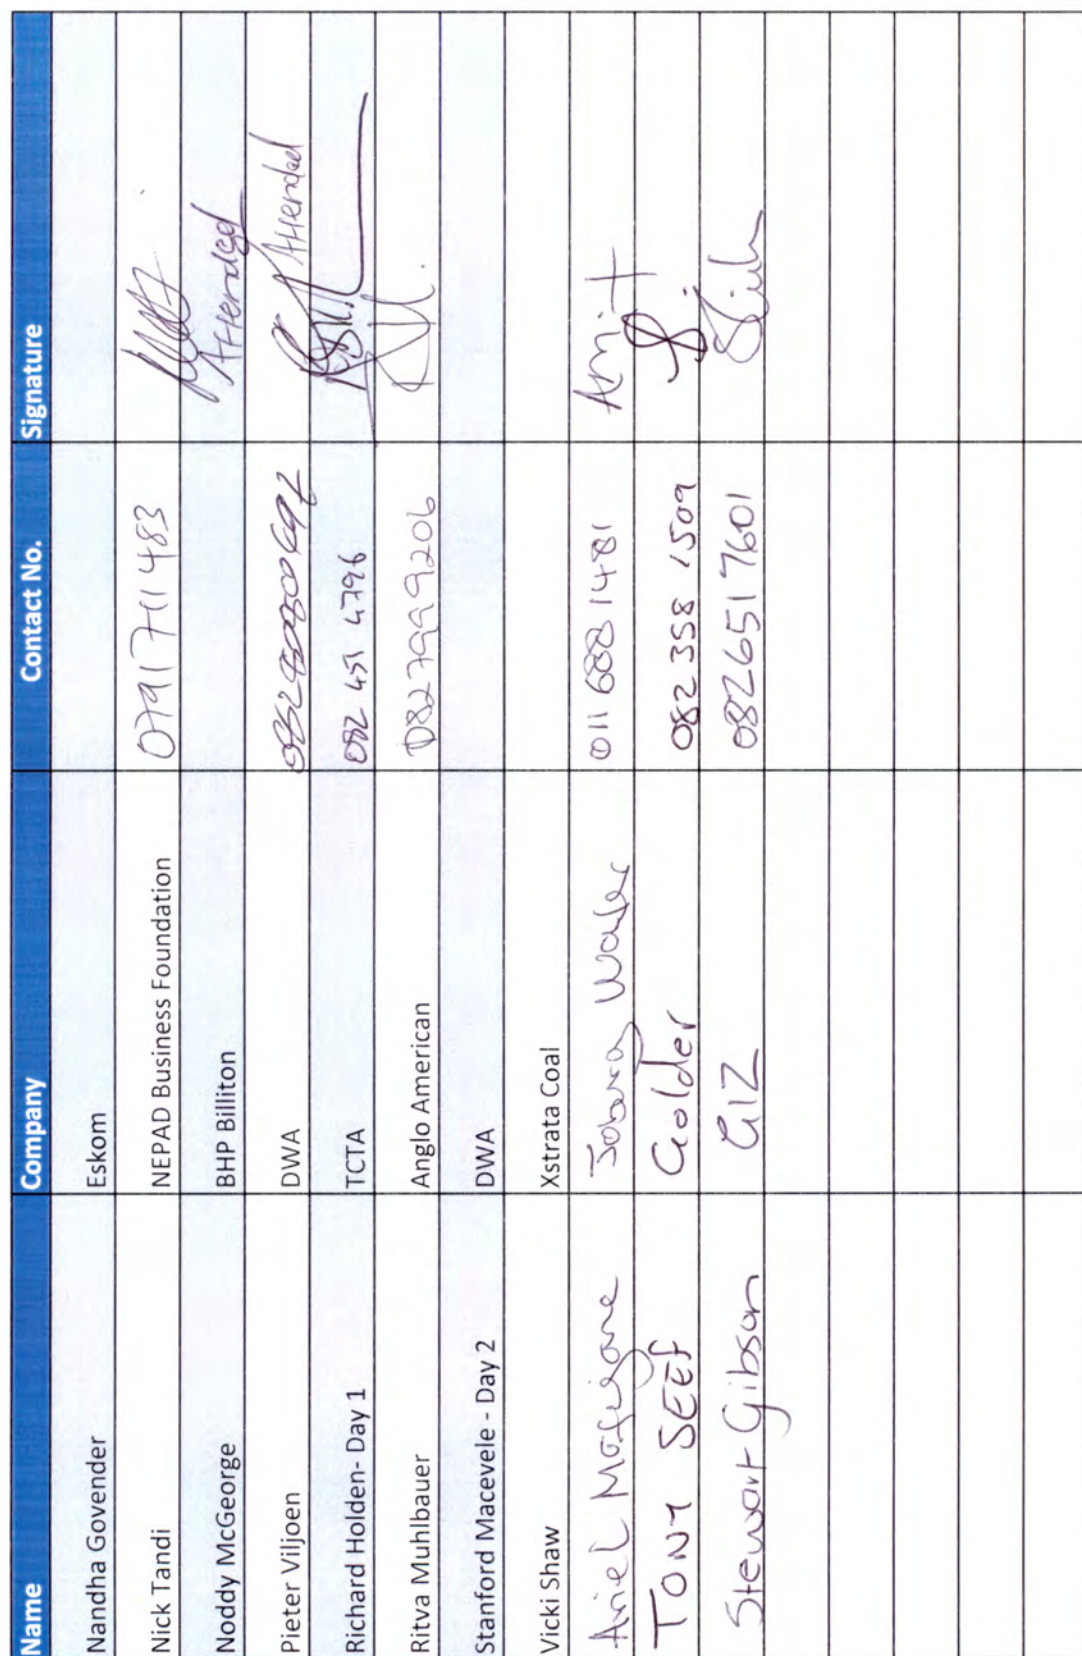 Name Company Contact No. Signature
Nandha Govender Eskom
Nick Tandi NEPAD Business Foundation 0791741483
Noddy McGeorge BHP Billiton Attended
Pieter Viljoen DWA Attended
Richard Holden- Day 1 TCTA 082 451 4796
Ritva Muhlbauer Anglo American 0827999206
Stanford Macevele - Day 2 DWA
Vicki Shaw Xstrata Coal
Ariel Joburg Water 011 688 1481
TONY SEEF Golder 082 358 1509
Stewart Gibson GIZ 082651 7601